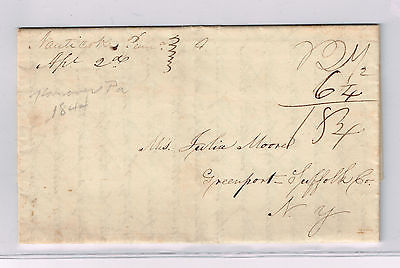 Nanticoke Penn
Apl 2d
Hanover Pa
1844
12½
6¼
18¾
Mrs. Julia Moore
Greenport Suffolk Co.
N. Y